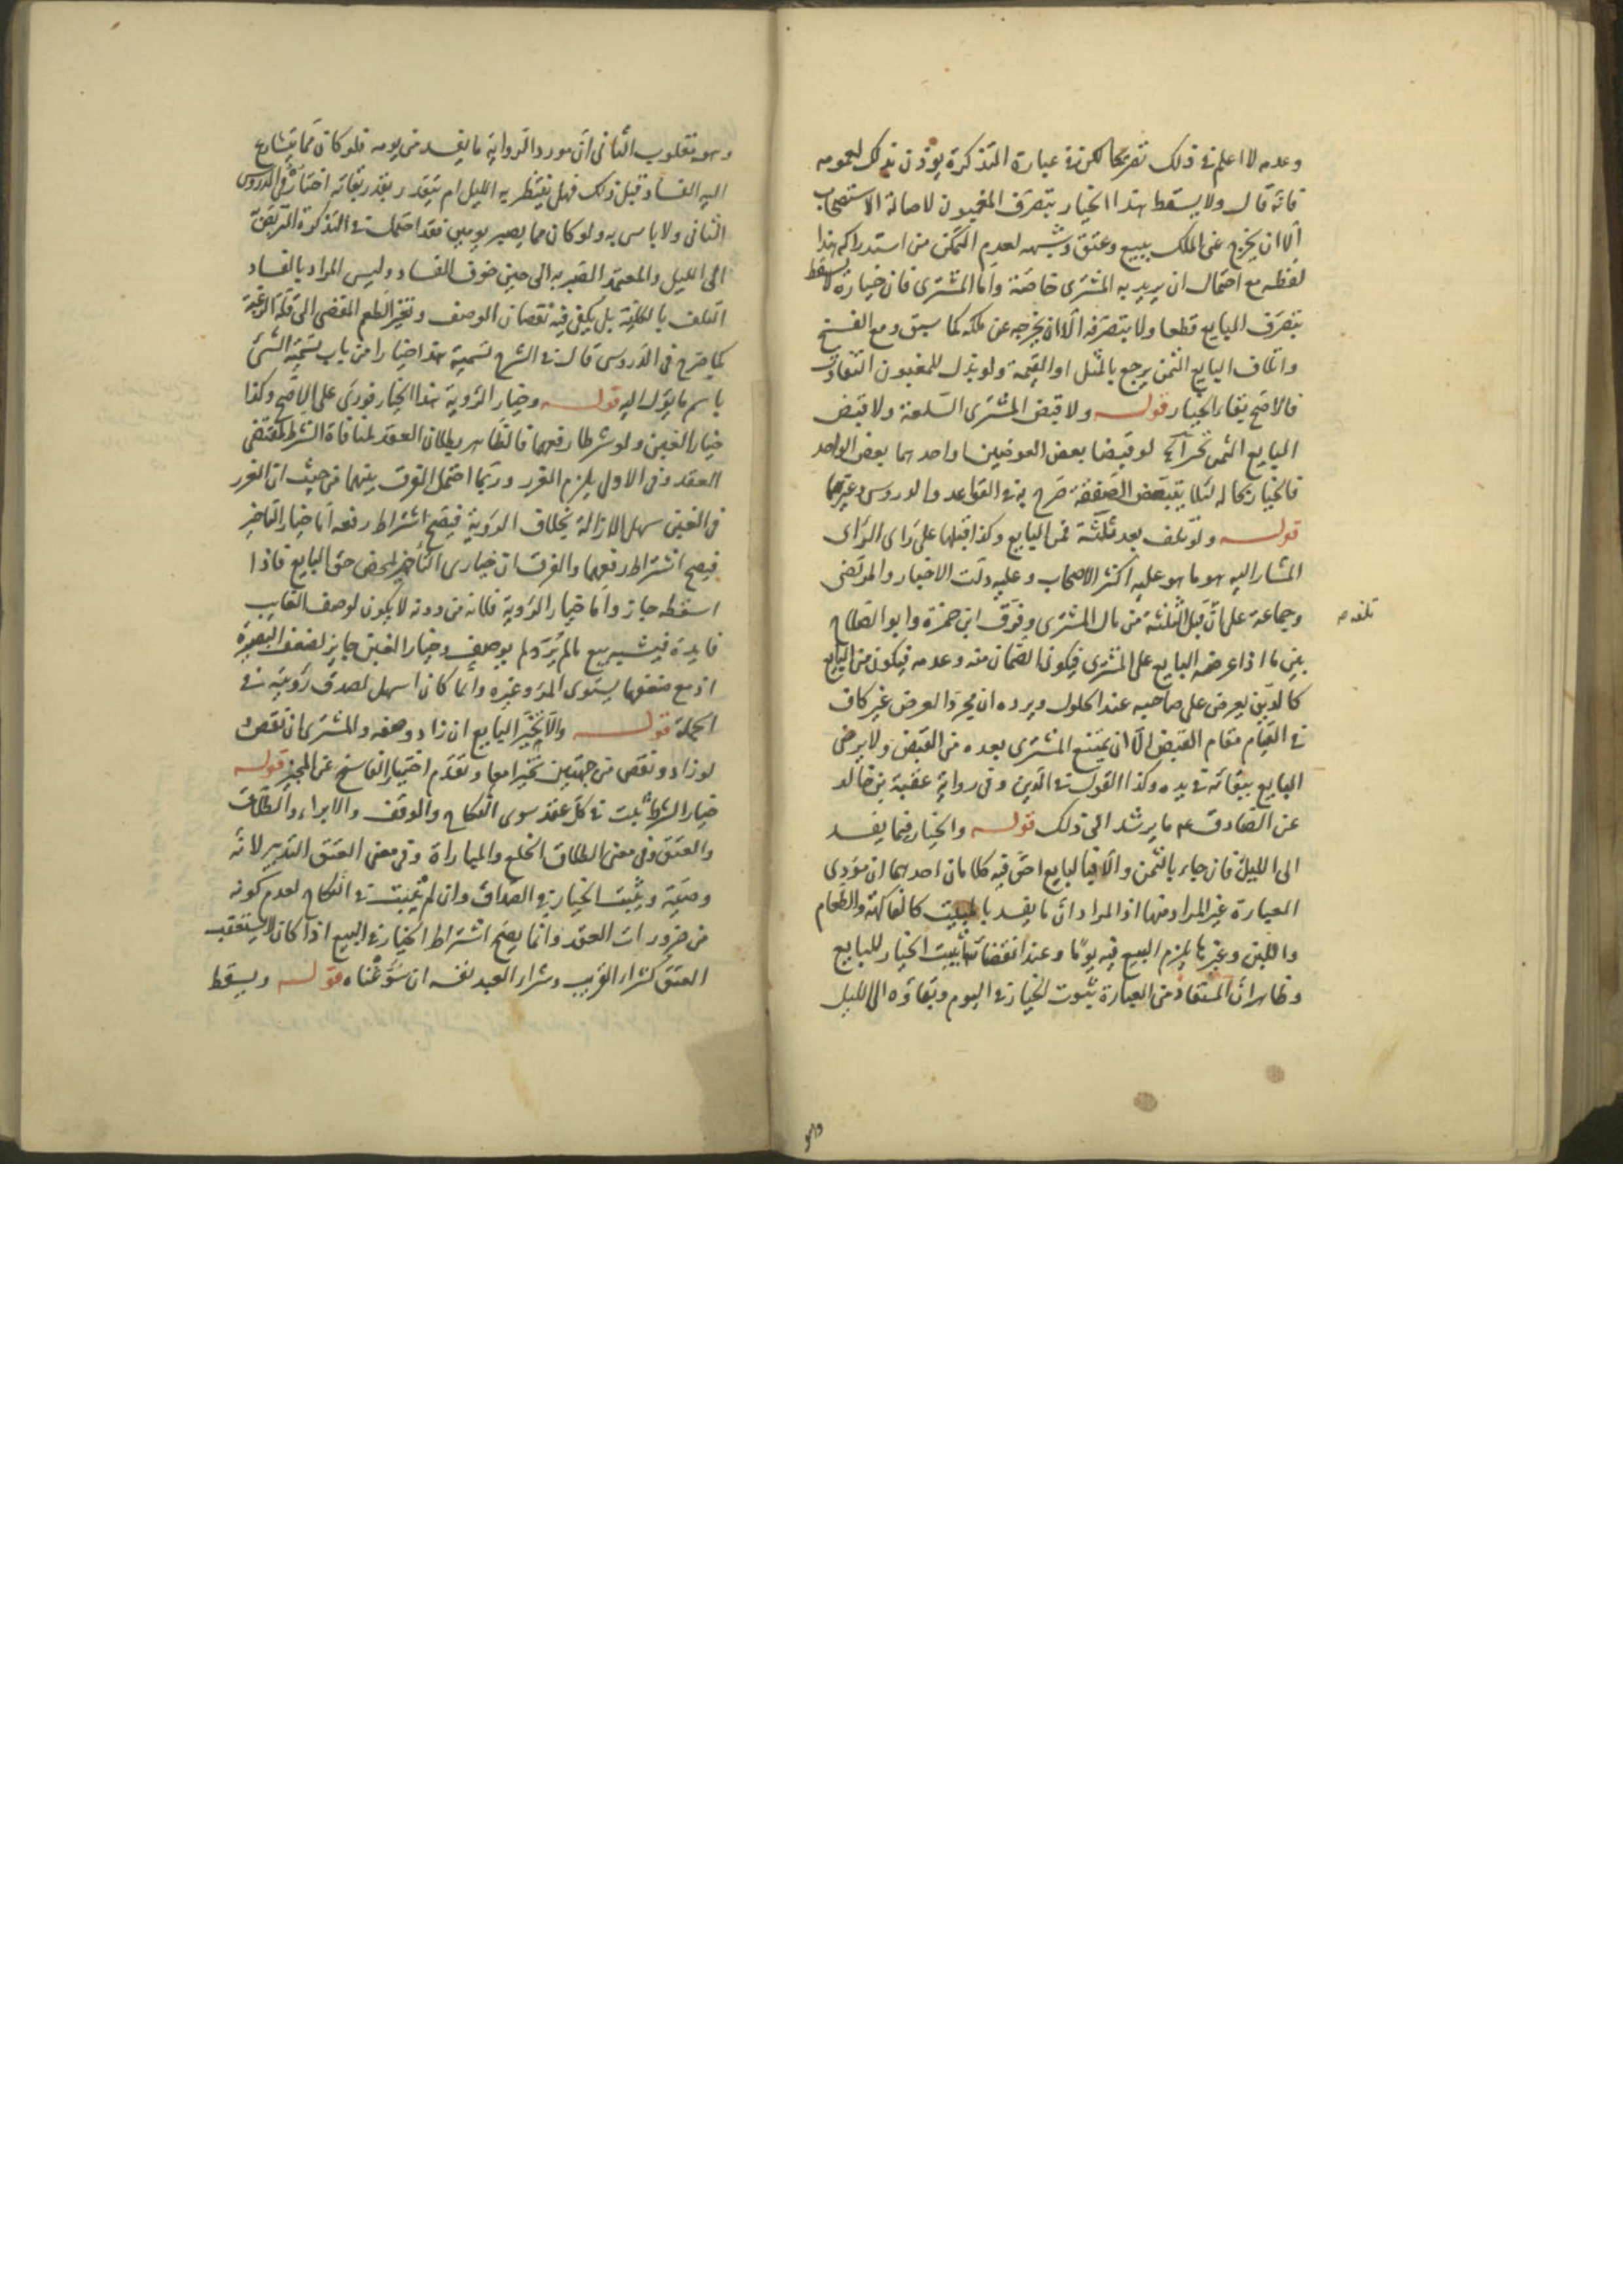 وعدمه لا اعلم في ذلك تصريحا لكن في عبارة التذكرة يؤذن بذلك لعمومه
فانه قال ولا يسقط هذا الخيار بتصرف المغبون لاصالة الاستصحاب
الا ان يخرج عن الملك ببيع وعتق وشبهه لعدم التمكن من استدراكه هذا
لفظه مع احتمال ان يريد به المشترى خاصة واما المشترى فان خياره لا يسقط
بتصرف البايع قطعا ولا بتصرفه الا ان يخرجه عن ملكه كما سبق ومع الفسخ
واتلاف البايع الثمن يرجع بالمثل او القيمة ولو بذل للمغبون التفاوت
فالاصح بقاء الخيار قوله ولا قبض المشترى السلعة ولا قبض
البايع الثمن لو قبضا بعض العوضين او احدهما بعض الواحد
فالخيار بحاله لئلا يتبعض الصفقة صرح به في القواعد والدروس وغيرهما
قوله ولو تلف بعد ثلثة فمن البايع وكذا قبلها على راى الراى
المشار اليه هو ما هو عليه اكثر الاصحاب وعليه دلت الاخبار والمرتضى
وجماعة على ان قبل الثلثة من مال المشترى وفرق ابن حمزة وابو الصلاح
تلفه
بين ما اذا عرضه البايع على المشترى فيكون الضمان منه وعدمه فيكون من البايع
كالدين يعرض على صاحبه عند الحلول ويرده ان مجرد العرض غير كاف
في القيام مقام القبض الا ان يمتنع المشترى بعده من القبض ولا يرضى
البايع ببقائه في يده وكذا القول في الدين وفي رواية عقبة بن خالد
عن الصادق ع ما يرشد الى ذلك قوله والخيار فيما يفسد
الى الليل فان جاء بالثمن والا فالبايع احق فيه كلامان احدهما ان مؤدى
العبارة غير المراد منها اذ المراد ان ما يفسد بالمبيت كالفاكهة والطعام
واللبن وغيرها يلزم البيع فيه يوما وعند انقضائه يثبت الخيار للبايع
وظاهر ان المستفاد من العبارة ثبوت الخيار في اليوم وبقاؤه الى الليل
وهو
وهو مقلوب الثانى ان مورد الرواية ما يفسد من يومه فلو كان مما يتسارع
اليه الفساد قبل ذلك فهل ينتظر به الليل ام يتقدر بقدر بقائه اختاره في الدروس
الثانى ولا باس به ولو كان مما يصبر يومين فقد احتمل في التذكرة التربص
الى الليل والمعتمد الصبر به الى حين خوف الفساد وليس المراد بالفساد
التلف بالكلية بل يكفى فيه نقصان الوصف وتغير الطعم المفضى الى قلة الرغبة
كما صرح في الدروس قال في الشرح تسمية هذا خيارا من باب تسمية الشئ
باسم ما يؤل اليه قوله وخيار الرؤية هذا الخيار فورى على الاصح وكذا
خيار الغبن ولو شرطا رفعهما فالظاهر بطلان العقد لمنافاة الشرط مقتضى
العقد وفي الاول يلزم الغرر وربما احتمل الفرق بينهما من حيث ان الغرر
في الغبن سهل الازالة بخلاف الرؤية فيصح اشتراط رفعه اما خيار التاخير
فيصح اشتراط رفعهما والفرق ان خيارى التأخير لمحض حق البايع فاذا
اسقطه جاز واما خيار الرؤية فلانه من دونه لا يكون لوصف الغايب
فايدة فيشبه بيع ما لم يُرَ ولم يوصف وخيار الغبن جابر لضعف البصيرة
اذ مع ضعفها يستوى المرء وغيره وانما كان اسهل لصدق رؤيته في
الجملة قوله والا يخير البايع ان زاد وصفه والمشترى ان نقص
لو زاد ونقص من جهتين تخيرا معا وتقدم اختيار الفاسخ عن المجيز قوله
خيار الشرط يثبت في كل عقد سوى النكاح والوقف والابراء والطلاق
والعتق وفي معنى الطلاق الخلع والمباراة وفي معنى العتق التدبير لانه
وصية ويثبت الخيار في الصداق وان لم يثبت في النكاح لعدم كونه
من ضرورات العقد وانما يصح اشتراط الخيار في البيع اذا كان لا يستعقب
العتق كشراء القريب وشراء العبد نفسه ان سوغناه قوله ويسقط